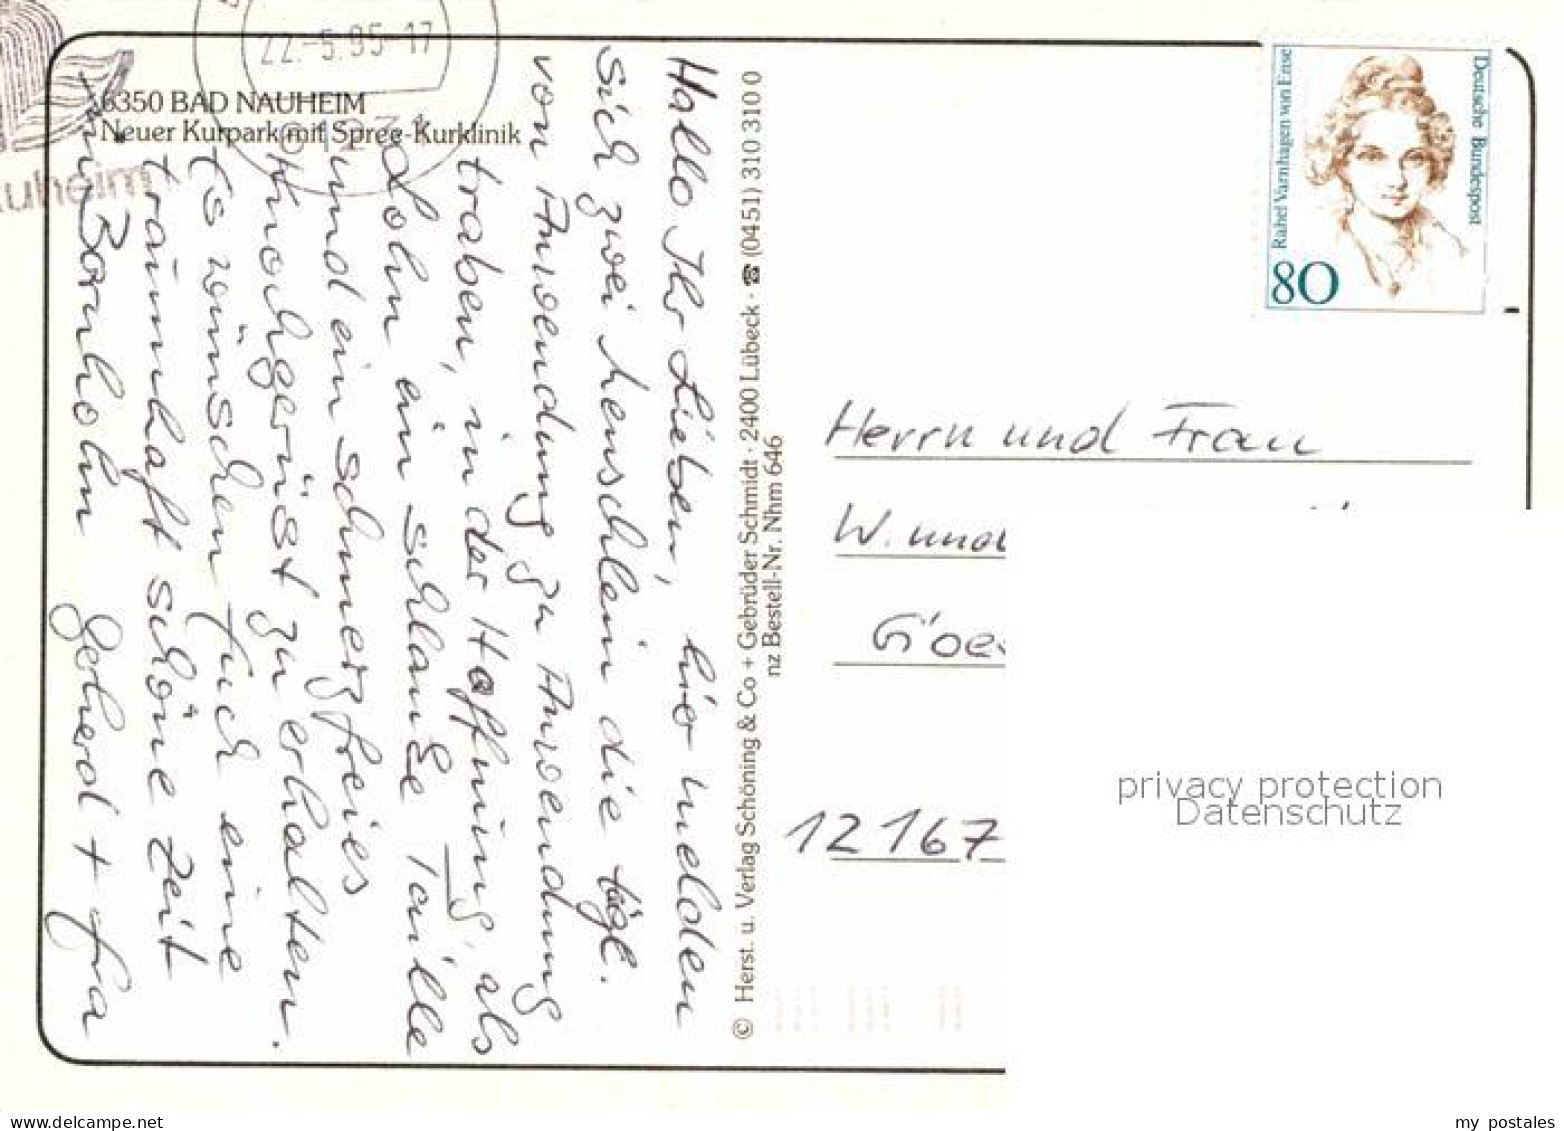 22.-5.95-17
6350 BAD NAUHEIM
Neuer Kurpark mit Spree-Kurklinik
auheim
Hallo Ihr Lieben, hier melden
sich zwei Menschlein die tägl.
von Anwendung zu Anwendung
traben, in der Hoffnung, als
Lohn ein schlanke Taille
und ein schmerzfreies
Knochgerüst zu erhalten.
Es wünschen Euch eine
traumhaft schöne Zeit
Bornholm Gerherd +
© Herst. u. Verlag Schöning & Co + Gebrüder Schmidt · 2400 Lübeck · ☎ (0451) 310 310 0
nz Bestell-Nr. Nhm 646
Rahel Varnhagen von Ense
Deutsche Bundespost
80
Herrn und Frau
W. und
12167
privacy protection
Datenschutz
delcampe.net
my_postales